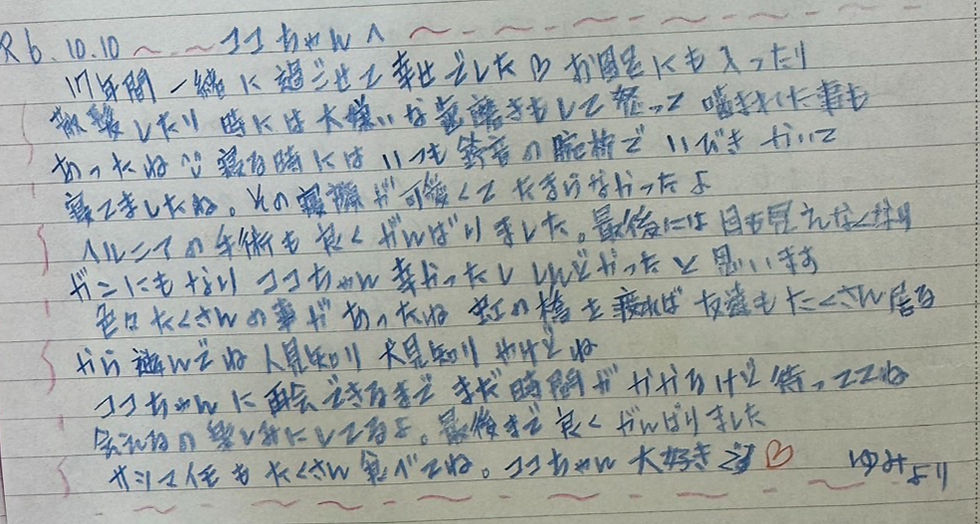 R6.10.10 ココちゃんへ
17年間一緒に過ごせて幸せでした♡ お風呂にも入ったり
散髪したり 時には大嫌いな歯磨きもして怒って噛まれた事も
あったね 寝る時にはいつも の腕枕でいびきかいて
寝てましたね。その寝顔が可愛くてたまらなかったよ
ヘルニアの手術も良くがんばりました。最後には目も見えなくなり
ガンにもなり ココちゃん辛かったししんどかったと思います
色々たくさんの事があったね 虹の橋を渡れば友達もたくさん居る
から遊んでね 人見知り 犬見知りやけどね
ココちゃんに再会できるまで まだ時間がかかるけど待っててね
会えるの楽しみにしてるよ。最後まで良くがんばりました
サツマイモもたくさん食べてね。ココちゃん大好き♡ ゆみより